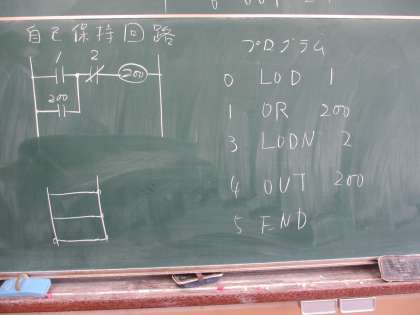 自己保持回路
1 2
200
200
プログラム
0 LOD 1
1 OR 200
3 LODN 2
4 OUT 200
5 END